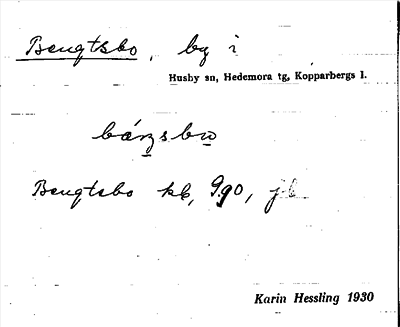 Bengtsbo, by i
Husby sn, Hedemora tg, Kopparbergs l.
Bengtsbo kb, 990, jb
Karin Hessling 1930